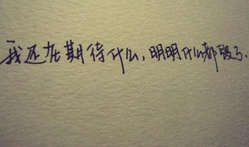 我还在期待什么,明明什么都没了.